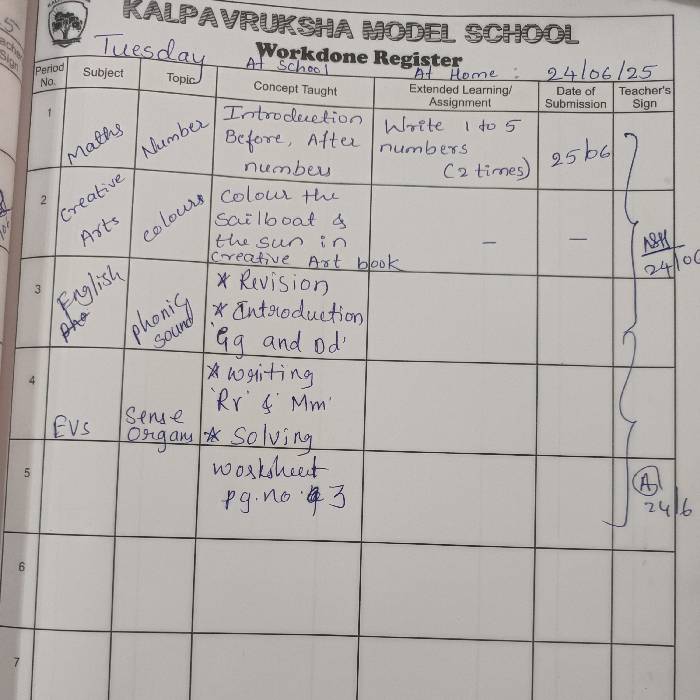 KALPAVRUKSHA MODEL SCHOOL
Tuesday
Workdone Register
At School
At Home : 24/06/25
Period No.
Subject
Topic
Concept Taught
Extended Learning/ Assignment
Date of Submission
Teacher's Sign
1
Maths
Number
Introduction
Before, After
numbers
Write 1 to 5
numbers
(2 times)
25/06
2
Creative
Arts
colours
Colour the
Sailboat &
the sun in
Creative Art book
–
–
24/06
3
English
phonic
sound
* Revision
* Introduction
'Gg and Dd'
4
* writing
'Rr' & 'Mm'
EVS
Sense
Organs
* Solving
5
worksheet
pg.no. 3
24/6
6
7